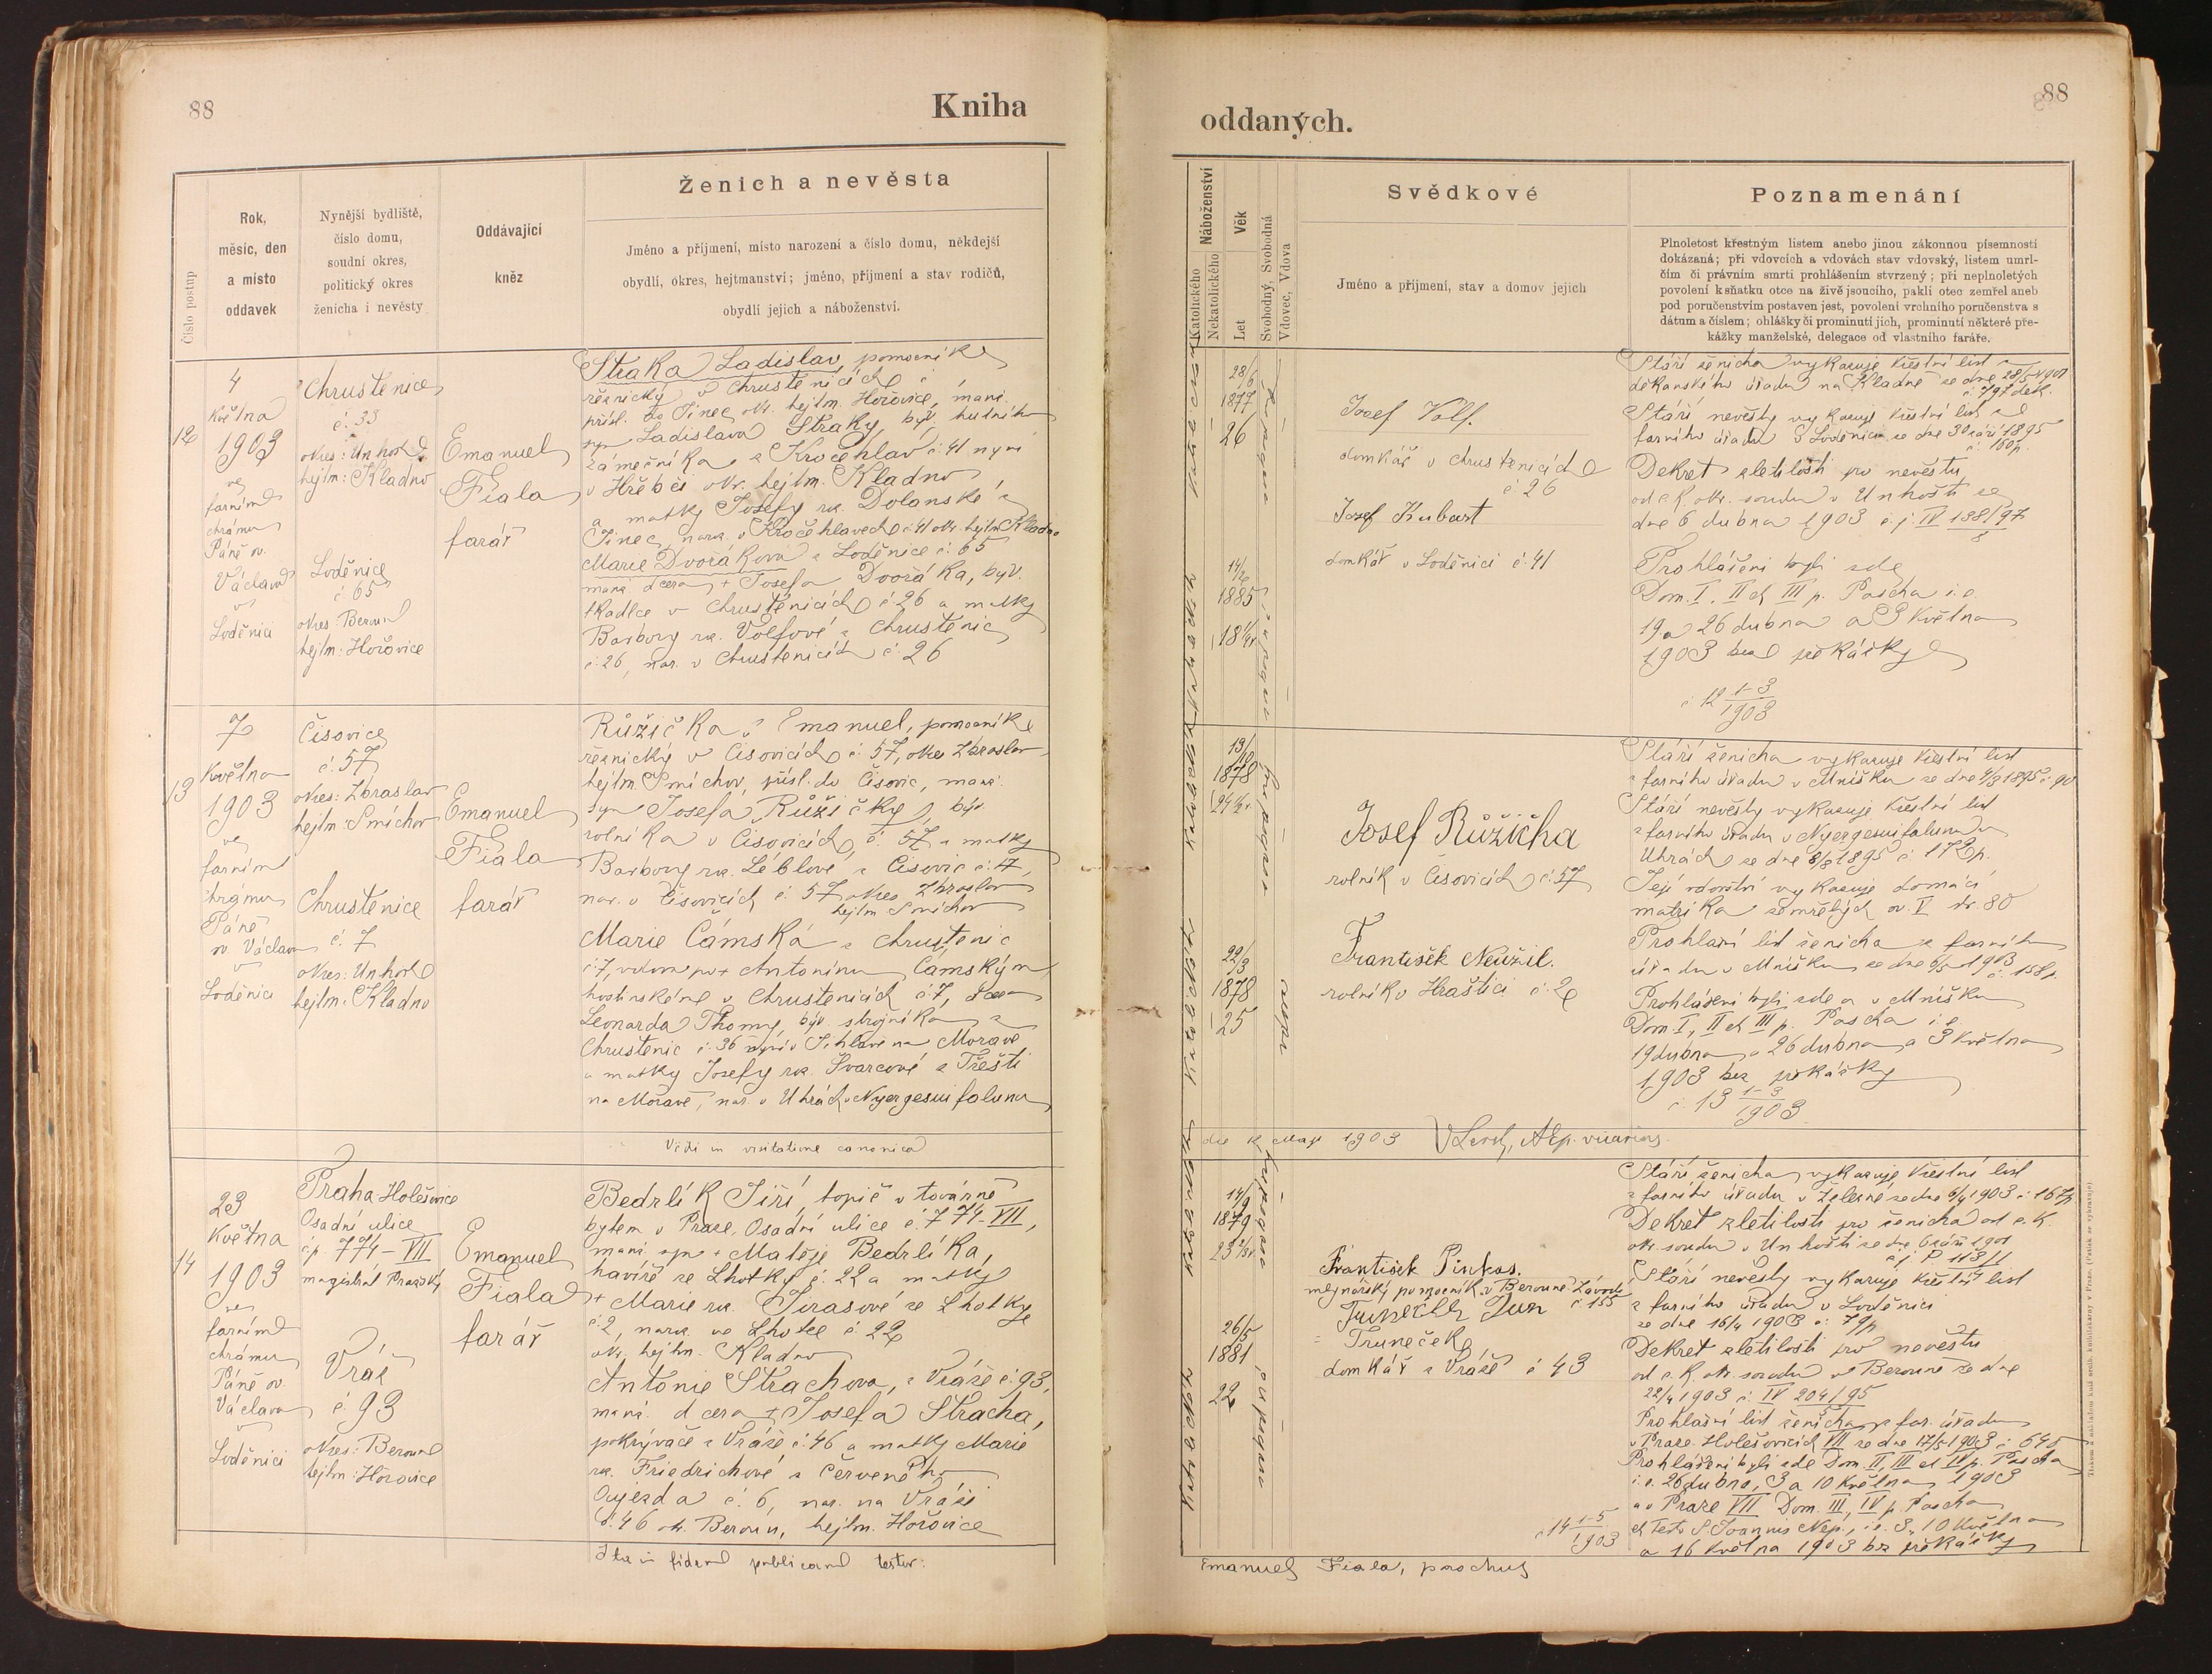 88
Kniha
Číslo postup
Rok,
měsíc, den
a místo
oddavek
Nynější bydliště,
číslo domu,
soudní okres,
politický okres
ženicha i nevěsty
Oddávající
kněz
Ženich a nevěsta
Jméno a příjmení, místo narození a číslo domu, někdejší
obydlí, okres, hejtmanství; jméno, příjmení a stav rodičů,
obydlí jejich a náboženství.
12
4
Května
1903
ve
farním
chrámu
Páně sv.
Václava
v
Loděnici
Chrustenice
č. 33
okres: Unhošť
hejtm: Kladno
Loděnice
č 65
okres: Beroun
hejtm: Hořovice
Emanuel
Fiala
farář
Straka Ladislav, pomocník
řeznický v Chrustenicích
přísl. do Jinec okr. hejtm. Hořovice, manž.
syn Ladislava Straky, býv. hutního
zámečníka z Kročehlav č. 41 nyní
v Hřebči okr. hejtm. Kladno
a matky Josefy roz. Dolanské z
Jinec, naroz. v Kročehlavech č. 41 okr. hejtm Kladno
Marie Dvořáková z Loděnice č. 65
manž. dcera + Josefa Dvořáka, býv.
tkadlce v Chrustenicích č 26 a matky
Barbory roz. Volfové z Chrustenic
č. 26, nar. v Chrustenicích č. 26
13
7
Května
1903
ve
farním
chrámu
Páně
sv. Václava
v
Loděnici
Čisovice
č. 57
okres: Zbraslav
hejtm: Smíchov
Chrustenice
č. 7
okres: Unhošť
hejtm: Kladno
Emanuel
Fiala
farář
Růžička Emanuel, pomocník
řeznický v Čisovicích č. 57, okres Zbraslav
hejtm. Smíchov, přísl. do Čisovic, manž.
syn Josefa Růžičky, býv.
rolníka v Čisovicích, č. 57 a matky
Barbory roz. Léblové z Čisovic č. 4,
nar. v Čisovicích č. 57 okres Zbraslav
hejtm Smíchov
Marie Čámská z Chrustenic
č 7, vdova po + Antonínu Čámským
hostinském v Chrustenicích č 7, dcera
Leonarda Thomy, býv. strojníka z
Chrustenic č. 36 nyní v Jihlavě na Moravě
a matky Josefy roz. Švarcové z Třešti
na Moravě, nar. v Uhrách v Nyergesuifalunu
Vidi in visitatione canonica
14
23
Května
1903
ve
farním
chrámu
Páně sv
Václava
v
Loděnici
Praha-Holešovice
Osadní ulice
čp. 774-VII
magistrat Pražský
Vráž
č. 93
okres: Beroun
hejtm: Hořovice
Emanuel
Fiala
farář
Bedrlík Jiří, topič v továrně
bytem v Praze, Osadní ulice č. 774-VII,
manž. syn + Matěje Bedrlíka,
havíře ze Lhotky č. 22 a matky
+ Marie roz. Jirasové ze Lhotky
č. 2, naroz. ve Lhotce č. 22
okr. hejtm. Kladno
Antonie Strachova, z Vráže č. 93,
manž. dcera + Josefa Stracha,
pokrývače z Vráže č. 46 a matky Marie
roz. Friedrichové z Červeného
Oujezda č. 6, nar. na Vráži
č. 46 ok. Beroun, hejtm. Hořovice
Ita in fidem publicam testor:
88
oddaných.
Náboženství
Katolického
Nekatolického
Věk
Let
Svobodný, Svobodná
Vdovec, Vdova
Svědkové
Jméno a příjmení, stav a domov jejich
Poznamenání
Plnoletost křestným listem anebo jinou zákonnou písemností
dokázaná; při vdovcích a vdovách stav vdovský, listem umrl-
čím či právním smrti prohlášením stvrzený; při neplnoletých
povolení k sňatku otce na živě jsoucího, pakli otec zemřel aneb
pod poručenstvím postaven jest, povolení vrchního poručenstva s
dátum a číslem; ohlášky či prominutí jich, prominutí některé pře-
kážky manželské, delegace od vlastního faráře.
28/6
1877
26
14/2
1885
18
Josef Volf.
domkář v Chrustenicích
č 26
Josef Kubart
domkář v Loděnici č. 41
Stáří ženicha vykazuje křestní list
děkanského úřadu na Kladně ze dne 28/5 1901
Stáří nevěsty vykazuje křestní list
farního úřadu v Loděnici ze dne 30 září 1895
č. 160p.
Dekret zletilosti pro nevěstu
od c k okr. soudu v Unhošti ze
dne 6 dubna 1903 č. j. IV 138/97
Prohlášeni byli zde
Dom. I, II et III p. Pascha i. e.
19 a 26 dubna a 3 Května
1903 bez překážky
č 12 1-3
1903
1878
24 1/2 r.
22/3
1878
25
Josef Růžička
rolník v Čisovicích č. 57
František Neužil.
rolník v Hraštici č. 2
Stáří ženicha vykazuje křestní list
z farního úřadu v Mníšku ze dne 9/3 1895 č. 90
Stáří nevěsty vykazuje křestní list
z farního úřadu v Nyergesuifalunu v
Uhrách ze dne 8/8 1895 č. 172p.
Její vdovství vykazuje domácí
matrika zemřelých sv. V str. 80
Prohlašní list ženicha z farního
úřadu v Mníšku ze dne 6/5 1903
č. 158p.
Prohlášeni byli zde a v Mníšku
Dom I, II et III p. Pascha i. e.
19 dubna a 26 dubna a 3 Května
1903 bez překážky
č. 13 1-3
1903
die 12 Maji 1903
vicarius.
14/9
1879
23
26/5
1881
22
František Pinkas.
mlynářský pomocník v Berouně Závodí
č 155
Truneček Jan
= Truneček
domkář z Vráže č 43
Stáří ženicha vykazuje křestní list
z farního úřadu v Železné ze dne 6/4 1903 č. 167p.
Dekret zletilosti pro ženicha od c. k.
okr. soudu v Unhošti ze dne 6 září 1901
Stáří nevěsty vykazuje křestní list
z farního úřadu v Loděnici
ze dne 16/4 1903 č. 79p
Dekret zletilosti pro nevěstu
od c. k. okr. soudu v Berouně ze dne
22/4 1903 č. IV 204/95
Prohlašní list ženicha z far. úřadu
v Praze. Holešovicích VII ze dne 17/5 1903 č. 645
Prohlášeni byli zde Dom. II, III et IV p. Pascha
i. e. 26 dubna, 3 a 10 Května 1903
a v Praze VII Dom. III, IV p. Pascha
et Festo S. Joannis Nep., i. e. 3., 10 Května
a 16 Května 1903 bez překážky
č 14 1-5
1903
Emanuel Fiala, parochus